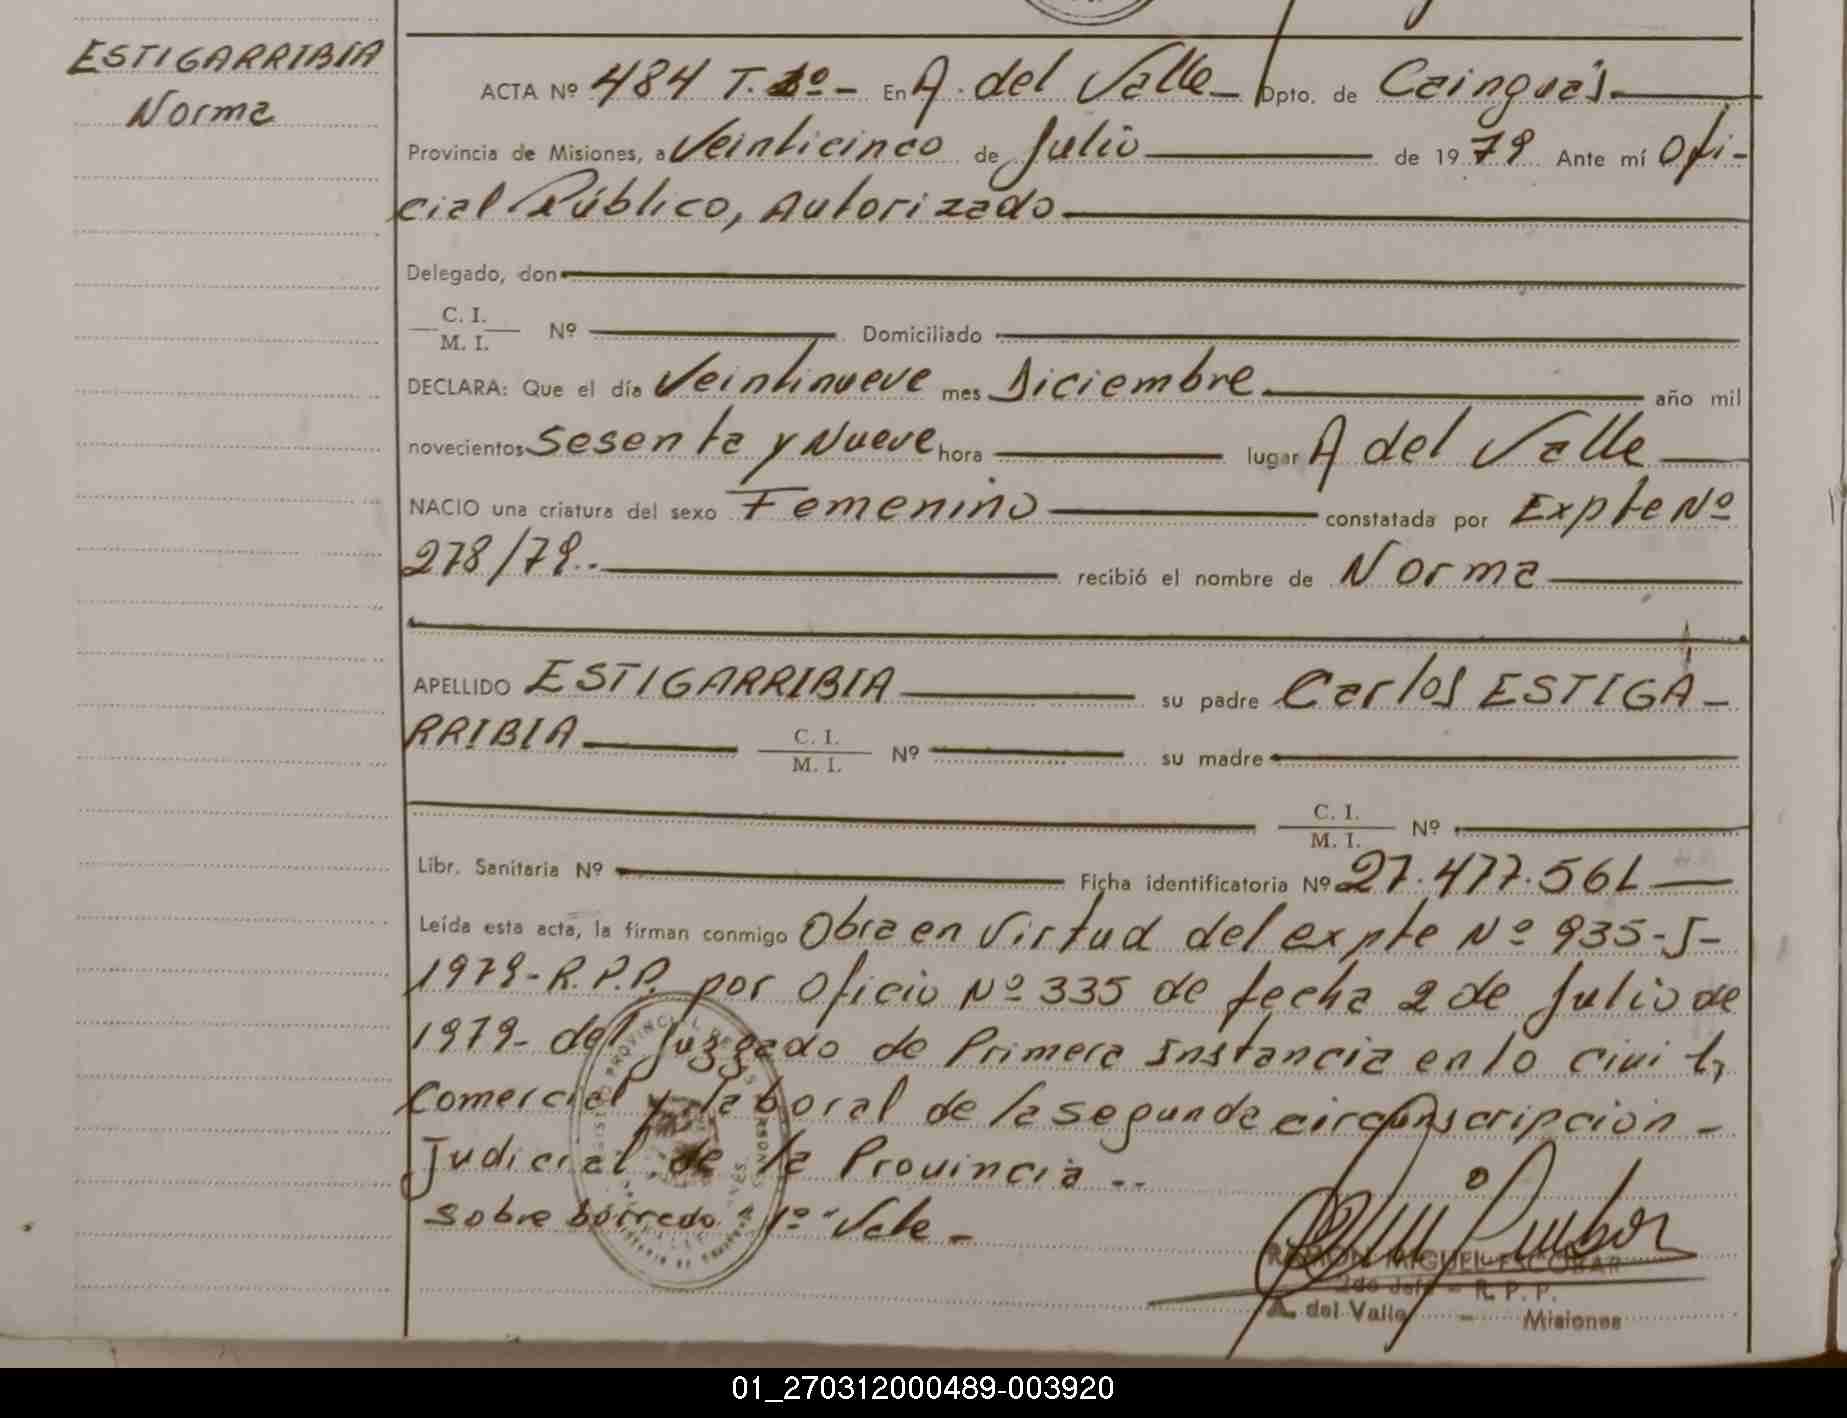 ESTIGARRIBIA
Norma
ACTA Nº 484 T. 1º - En A. del Valle - Dpto. de Cainguás.
Provincia de Misiones, a Veinticinco de Julio de 1979 Ante mí Ofi-
cial Público, Autorizado
Delegado, don
C. I.
M. I. Nº Domiciliado
DECLARA: Que el día Veintinueve mes Diciembre año mil
novecientos Sesenta y Nueve hora lugar A del Valle
NACIO una criatura del sexo Femenino constatada por Expte Nº
278/79.. recibió el nombre de Norma
APELLIDO ESTIGARRIBIA su padre Carlos ESTIGA-
RRIBIA C. I.
M. I. Nº su madre
C. I.
M. I. Nº
Libr. Sanitaria Nº Ficha identificatoria Nº 27.477.561
Leída esta acta, la firman conmigo Obra en Virtud del expte Nº 935-J-
1979-R.P.P. por Oficio Nº 335 de fecha 2 de Julio de
1979- del Juzgado de Primera Instancia en lo civil,
Comercial y laboral de la segunda circunscripción -
Judicial de la Provincia --
Sobre borrado 1º Vale -
RAMON MIGUEL ESCOBAR
2do Jefe - R. P. P.
A. del Valle - Misiones
01_270312000489-003920